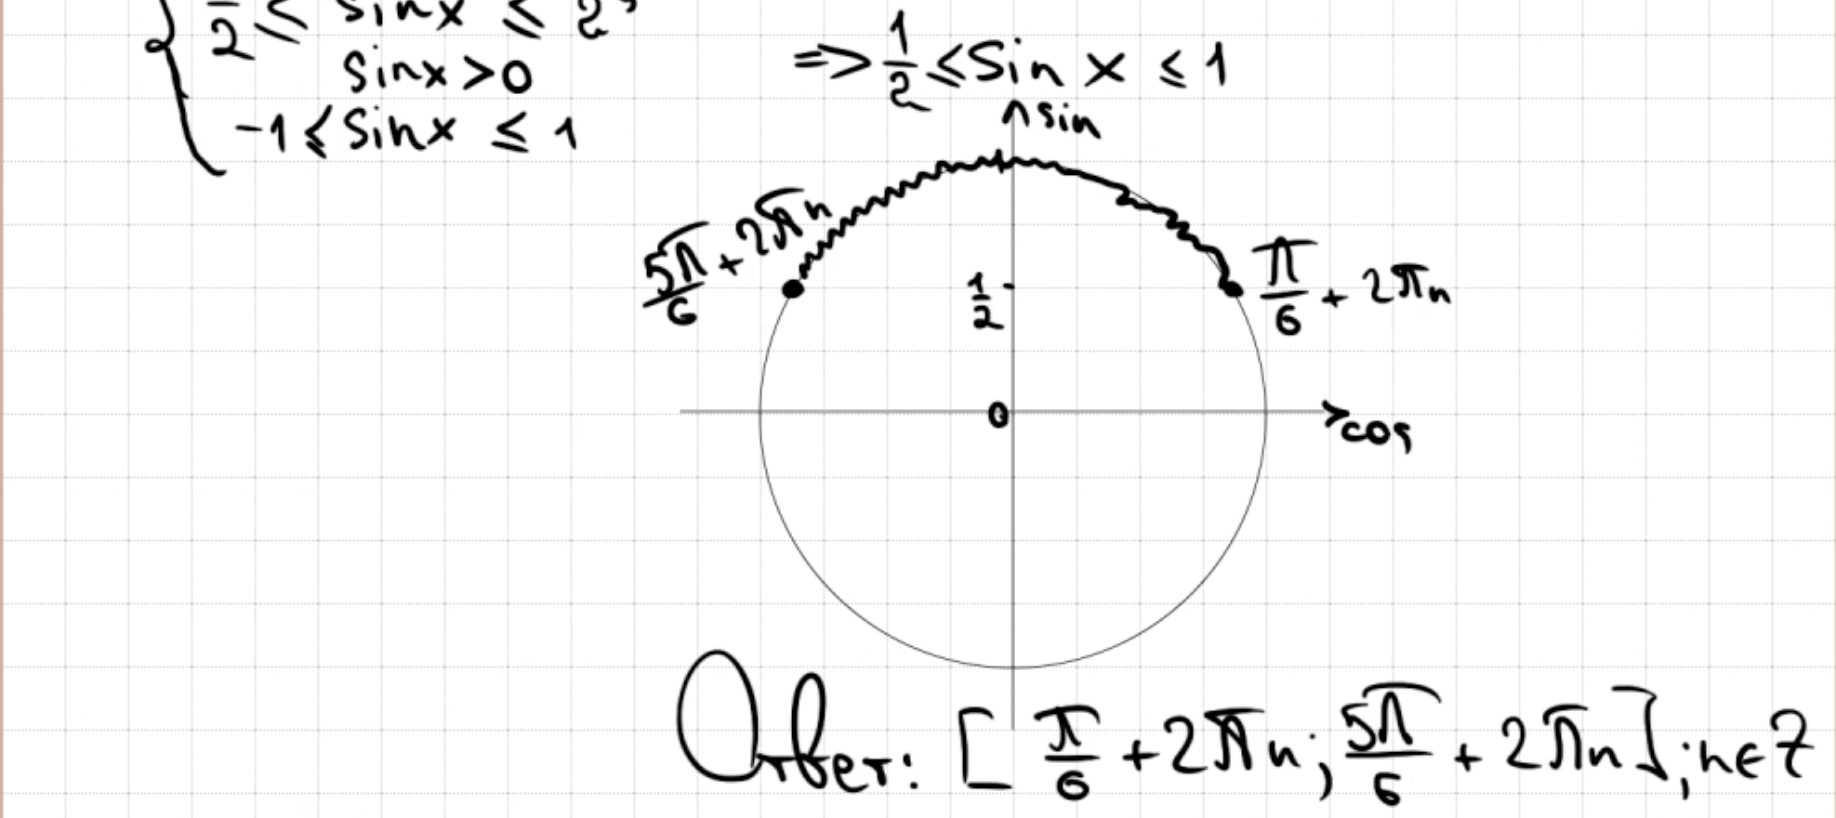 1/2 ≤ sin x ≤ 2,
sin x > 0
-1 ≤ sin x ≤ 1
=> 1/2 ≤ sin x ≤ 1
sin
5π/6 + 2πn
1/2
π/6 + 2πn
0
cos
Ответ: [π/6 + 2πn; 5π/6 + 2πn]; n∈Z